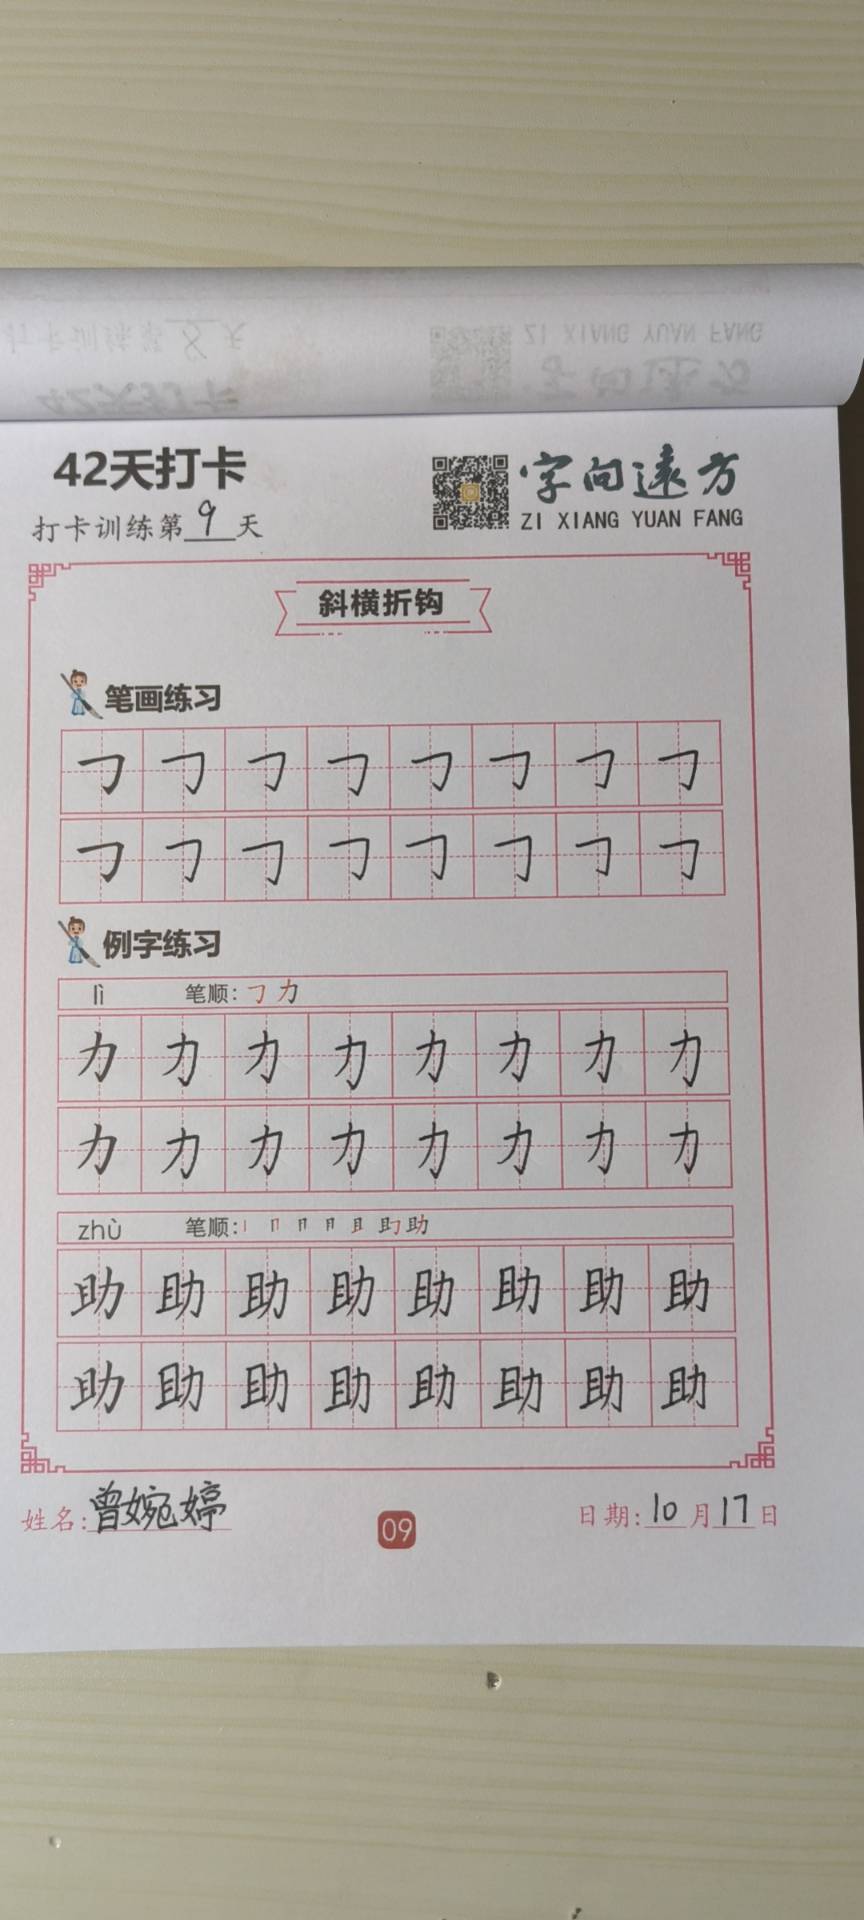 打卡训练第 8 天
ZI XIANG YUAN FANG
42天打卡
字向远方
42天打卡
字向遠方
打卡训练第 9 天
ZI XIANG YUAN FANG
斜横折钩
笔画练习
㇆ ㇆ ㇆ ㇆ ㇆ ㇆ ㇆ ㇆
㇆ ㇆ ㇆ ㇆ ㇆ ㇆ ㇆ ㇆
例字练习
lì 笔顺: ㇆ 力
力 力 力 力 力 力 力 力
力 力 力 力 力 力 力 力
zhù 笔顺:
助 助 助 助 助 助 助 助
助 助 助 助 助 助 助 助
姓名: 曾婉婷
09
日期: 10 月 17 日